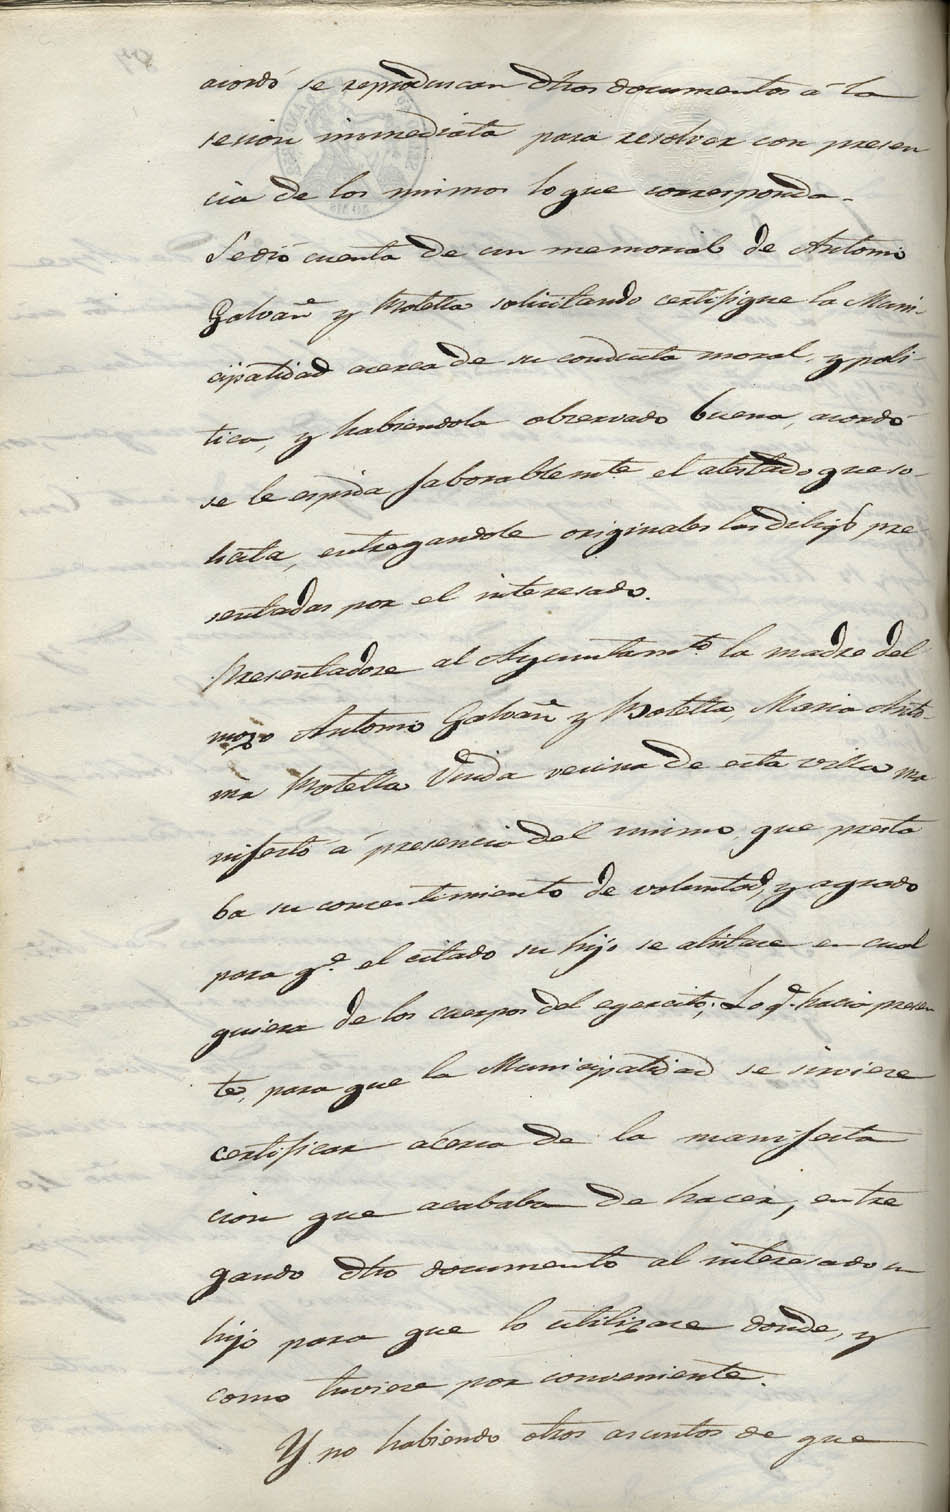 acordó se reproduscan dhos documentos á la
sesion inmediata para resolver con presen
cia de los mismos lo que corresponda.
Se dió cuenta de un memorial de Antonio
Galvañ y Motella solicitando certifique la Muni-
cipalidad acerca de su conducta moral, y poli-
tica, y habiendola observado buena, acordó
se le espida faborablemte. el atestado que so-
licita, entregandole originales las diligs. pre
sentadas por el interesado.
Presentadose al Ayuntamto. la madre del
mozo Antonio Galvañ y Motella, Maria Anto-
nia Motella Viuda vecina de esta villa ma
nifestó á presencia del mismo, que presta
ba su consentimiento de voluntad, y agrado
para qe. el citado su hijo se alistase en cual
quiera de los cuerpos del egercito; Lo q. hacia presen
te, para que la Municipalidad se sirviese
certificar acerca de la manifesta
cion que acababa de hacer, entre
gando dho documento al interesado su
hijo para que lo utilizase donde, y
como tuviese por conveniente.
Y no habiendo otros asuntos de que